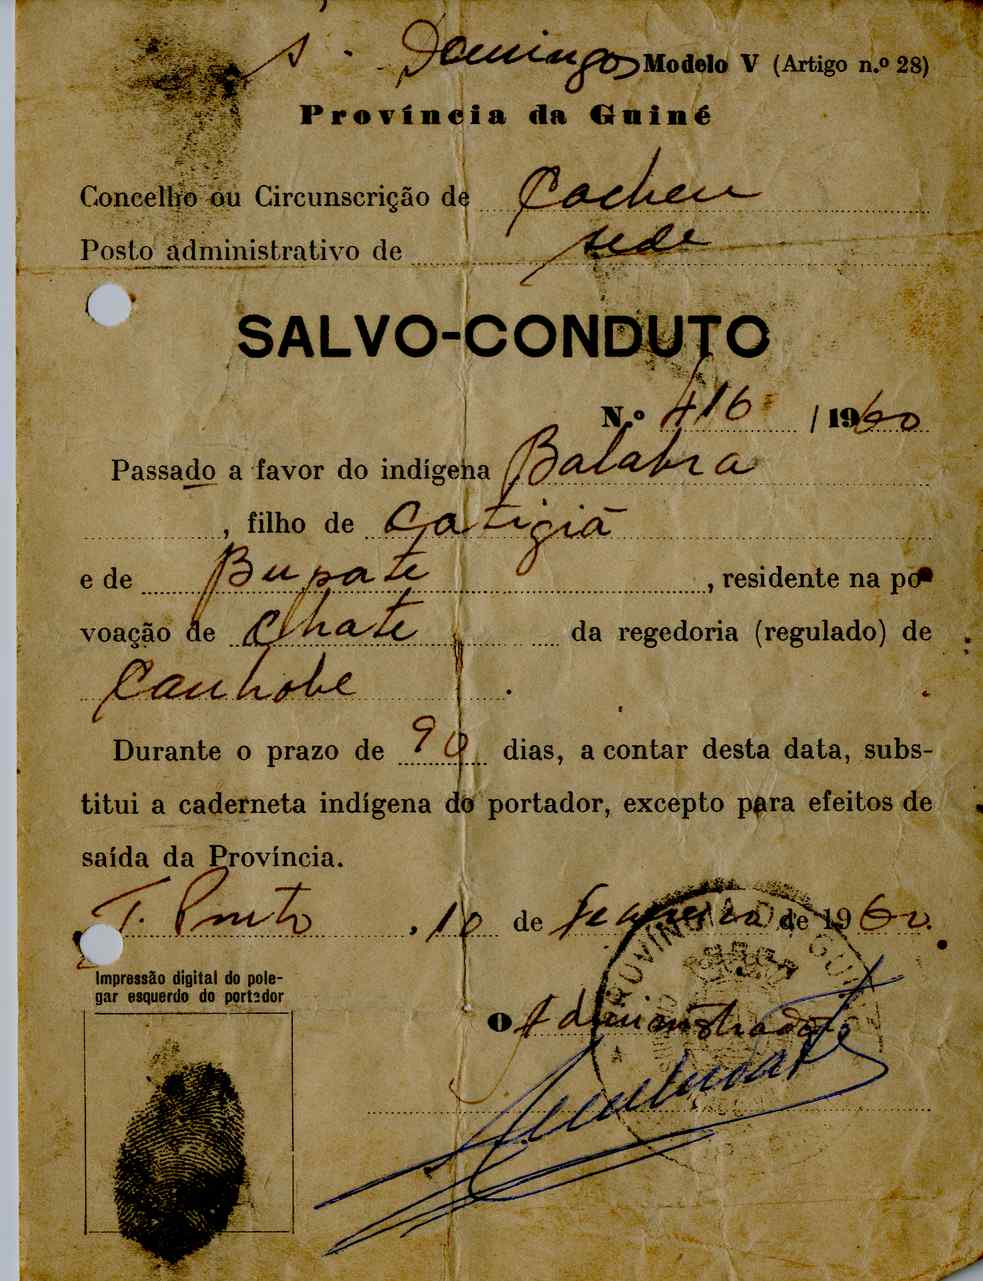 S. Domingos Modelo V (Artigo n.º 28)
Província da Guiné
Concelho ou Circunscrição de Cacheu
Posto administrativo de sede
SALVO-CONDUTO
N.º 416 / 1960
Passado a favor do indígena Balabra
, filho de Catigiã
e de Bupate, residente na po-
voação de Chate da regedoria (regulado) de
Canhobe.
Durante o prazo de 90 dias, a contar desta data, subs-
titui a caderneta indígena do portador, excepto para efeitos de
saída da Província.
T. Pinto, 10 de de 1960.
Impressão digital do pole-
gar esquerdo do portador
O Administrador
PROVÍNCIA DA GUINÉ